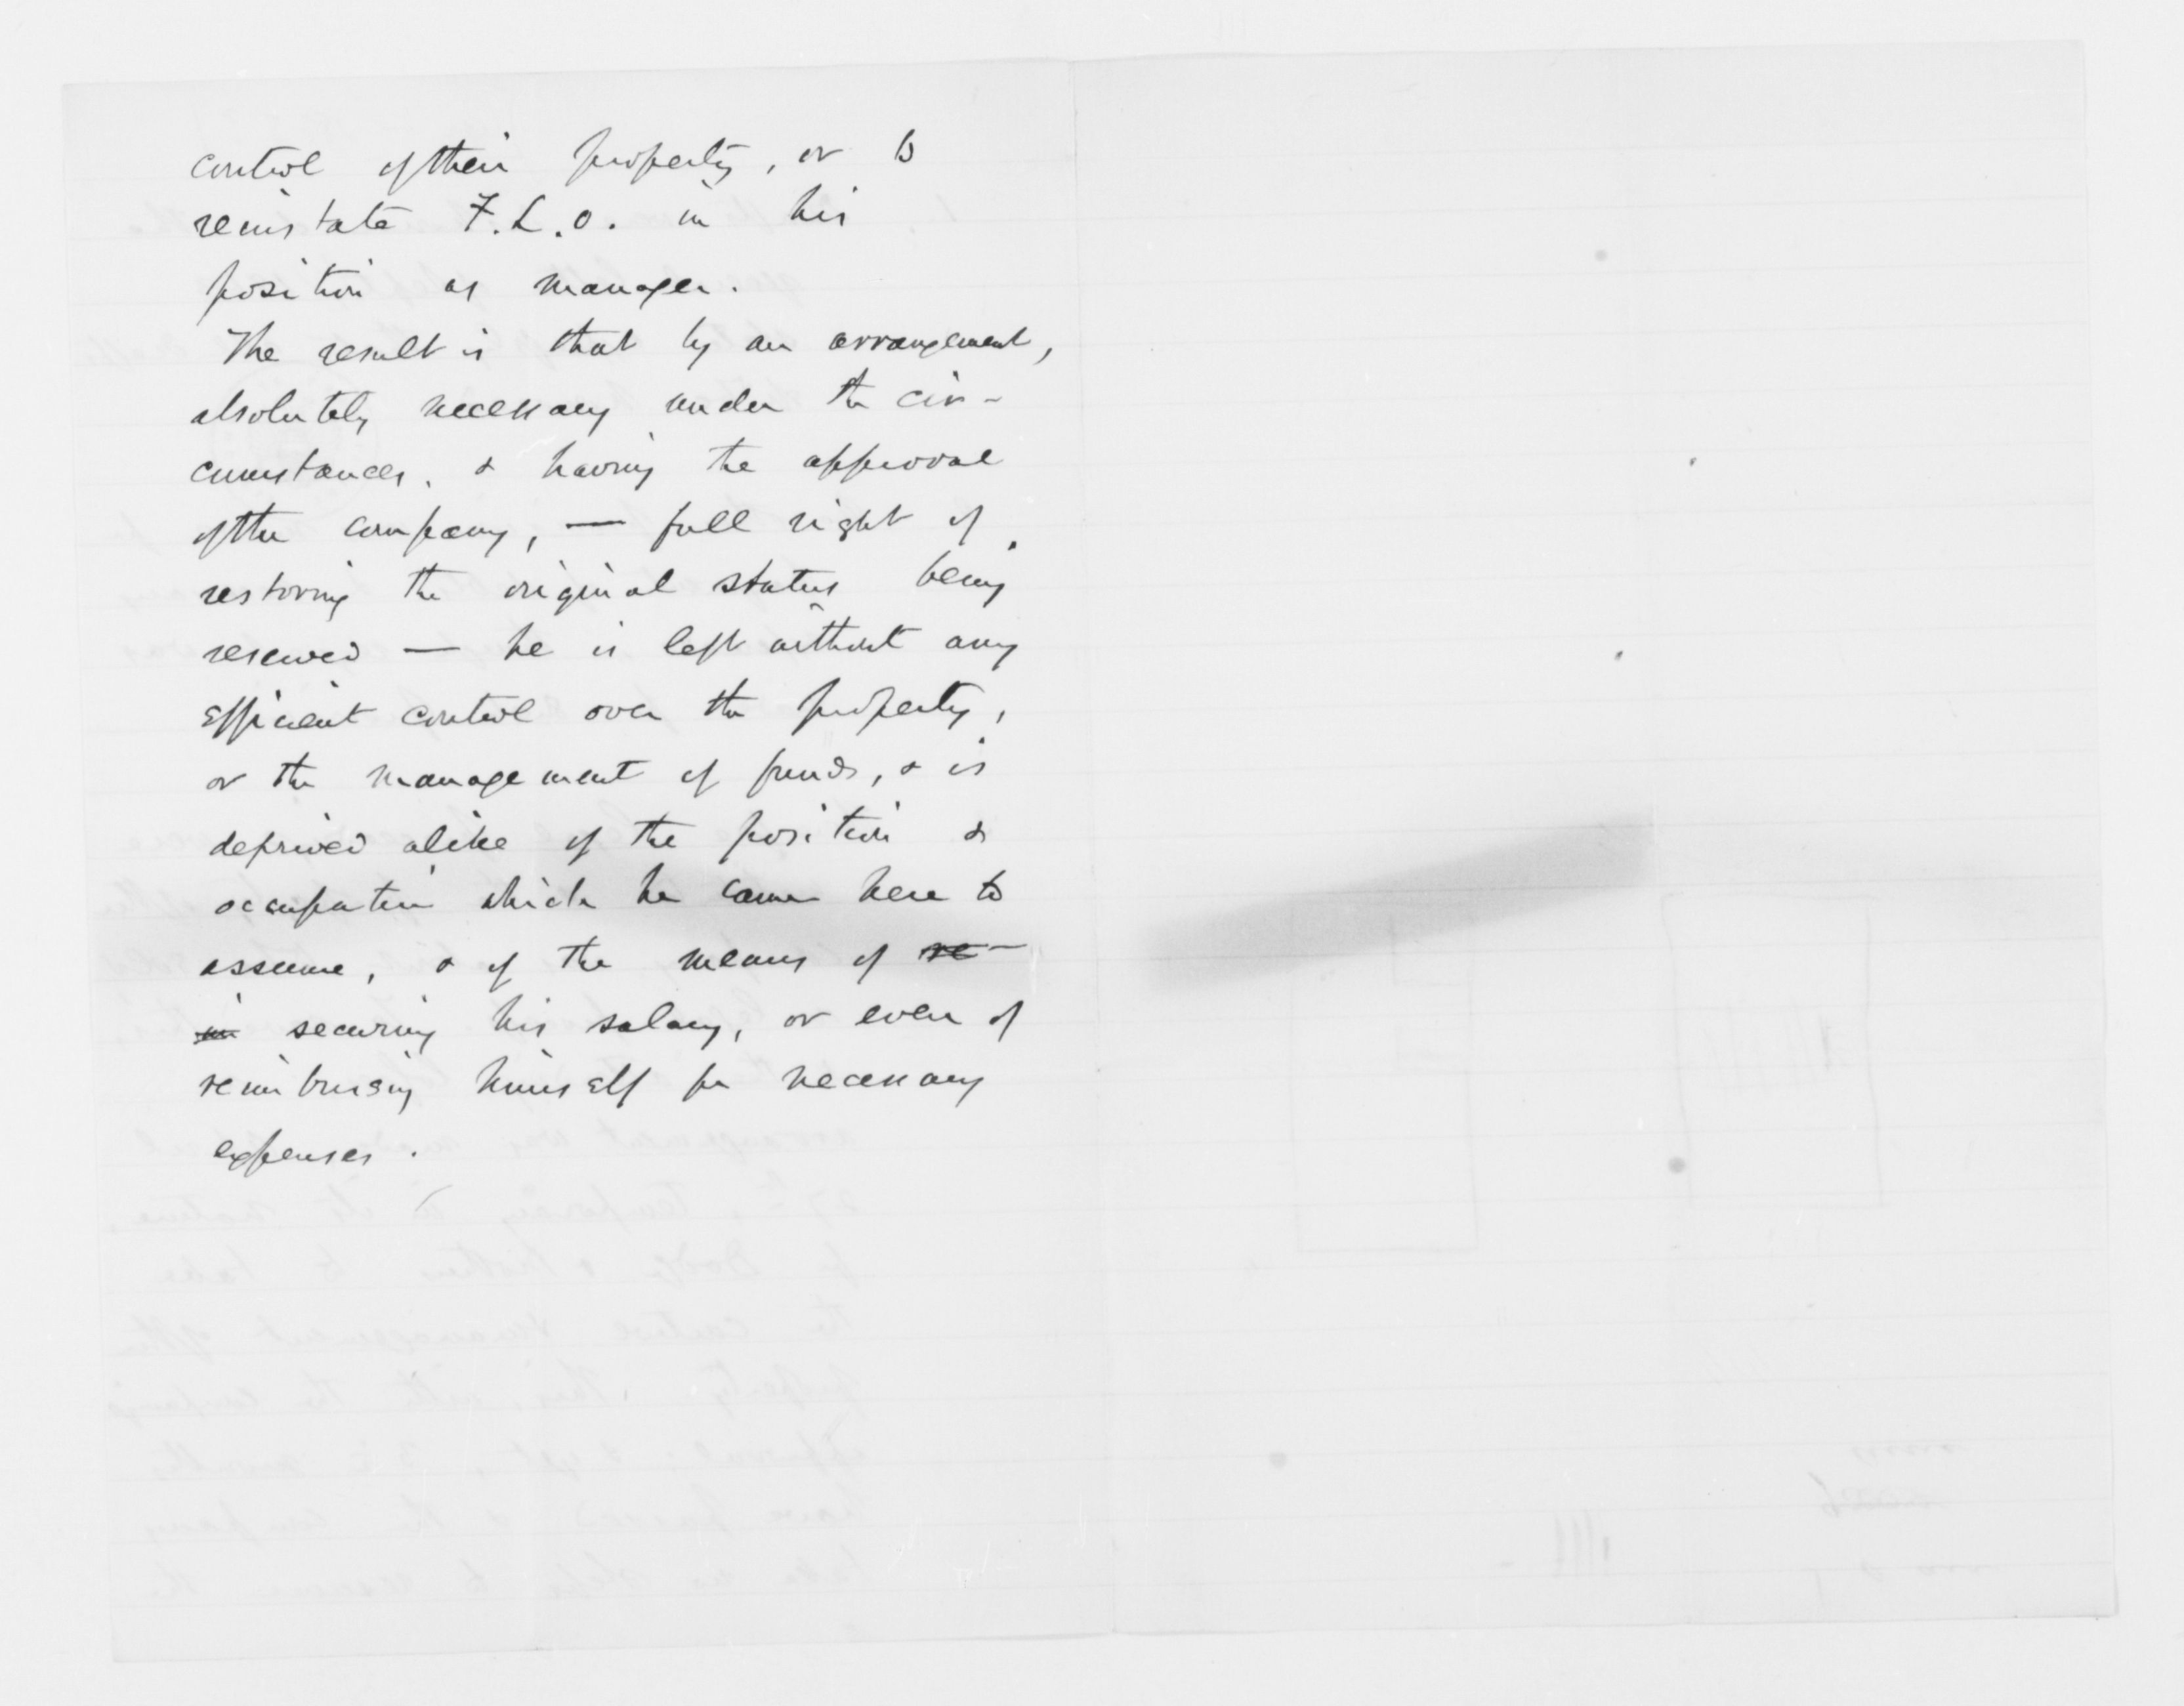 control of their property, or to
reinstate F.L.O. in his
position as manager.
The result is that by an arrangement,
absolutely necessary under the cir-
cumstances, & having the approval
of the company, — full right of
restoring the original status being
reserved — he is left without any
efficient control over the property,
or the management of funds, & is
deprived alike of the position &
occupation which he came here to
assume, & of the means of re-
im securing his salary, or even of
reimbursing himself for necessary
expenses.